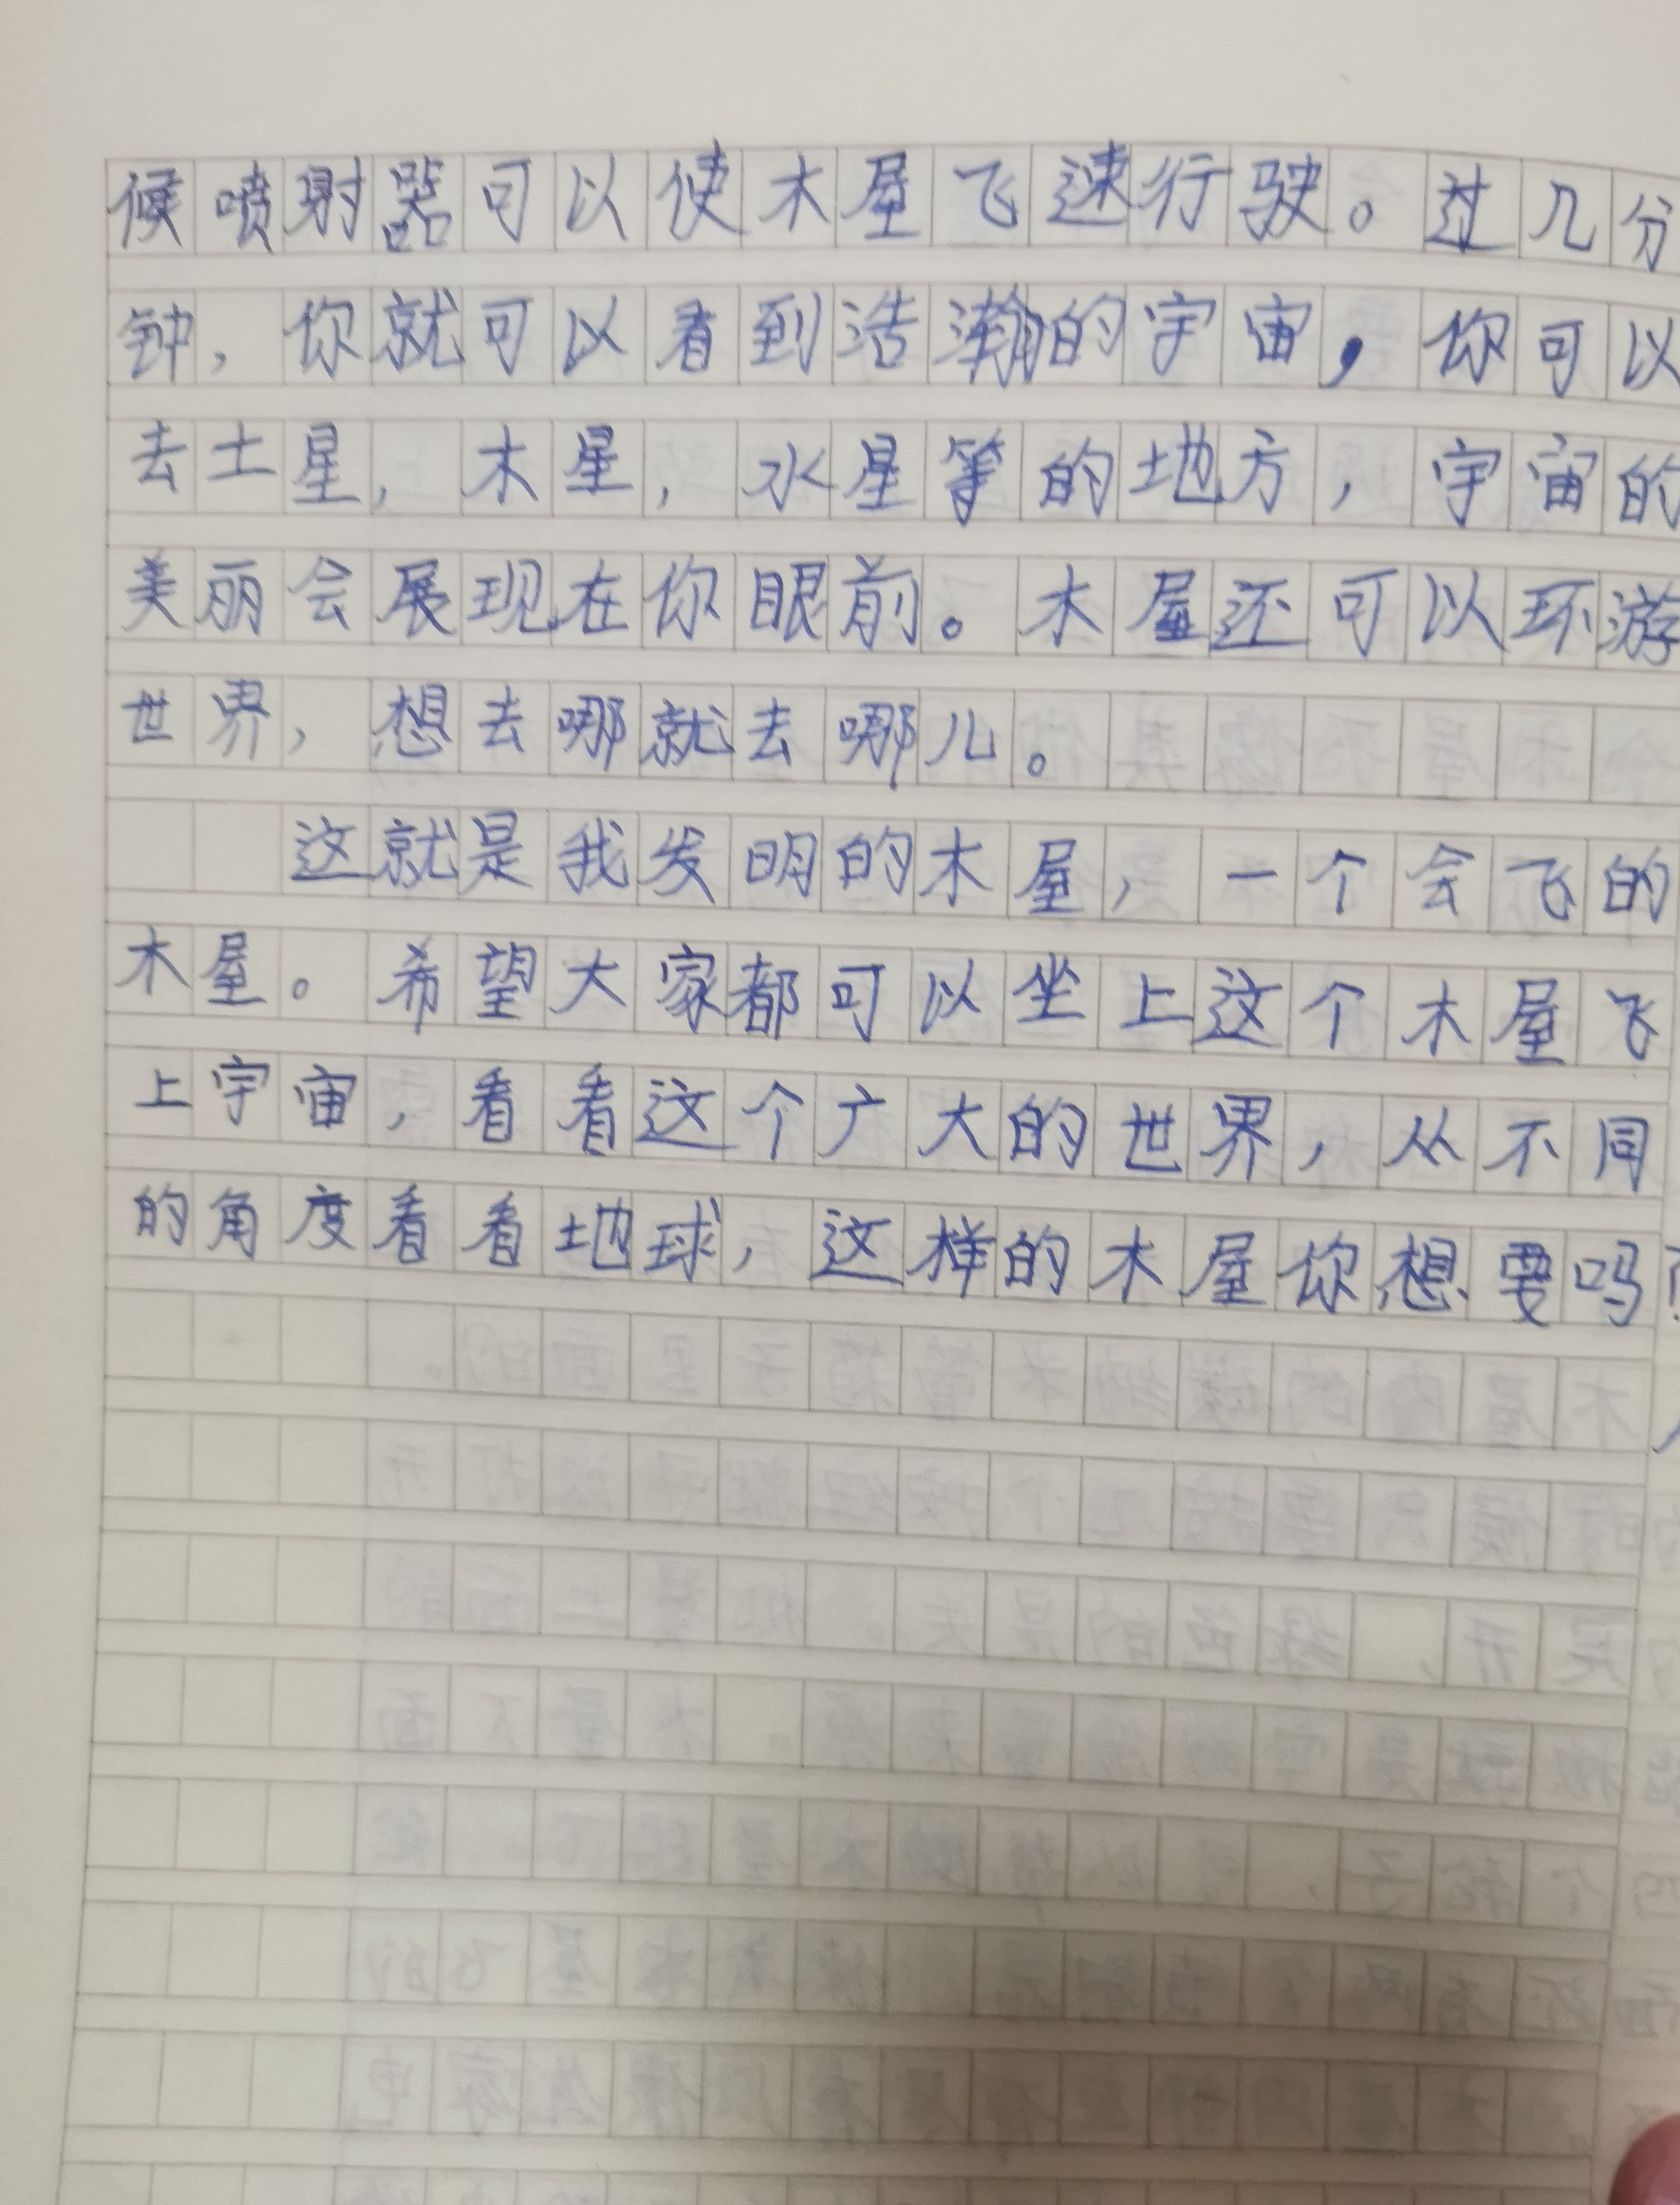 候喷射器可以使木屋飞速行驶。过几分
钟，你就可以看到浩瀚的宇宙，你可以
去土星，木星，水星等的地方，宇宙的
美丽会展现在你眼前。木屋还可以环游
世界，想去哪就去哪儿。
这就是我发明的木屋，一个会飞的
木屋。希望大家都可以坐上这个木屋飞
上宇宙，看看这个广大的世界，从不同
的角度看看地球，这样的木屋你想要吗？